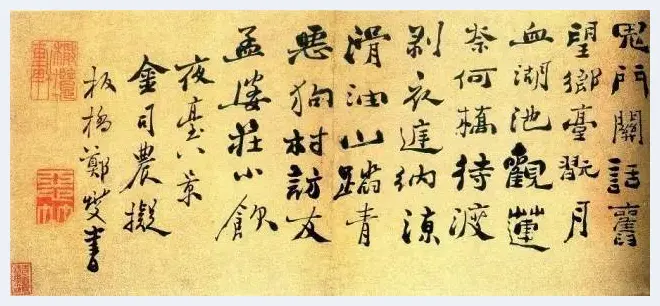 鬼門關話舊
望鄉臺翫月
血湖池觀蓮
奈何橋待渡
剥衣庭納涼
滑油山蹋青
惡狗村訪友
孟婆莊小飲
夜臺八景
金司農擬
板橋鄭燮書